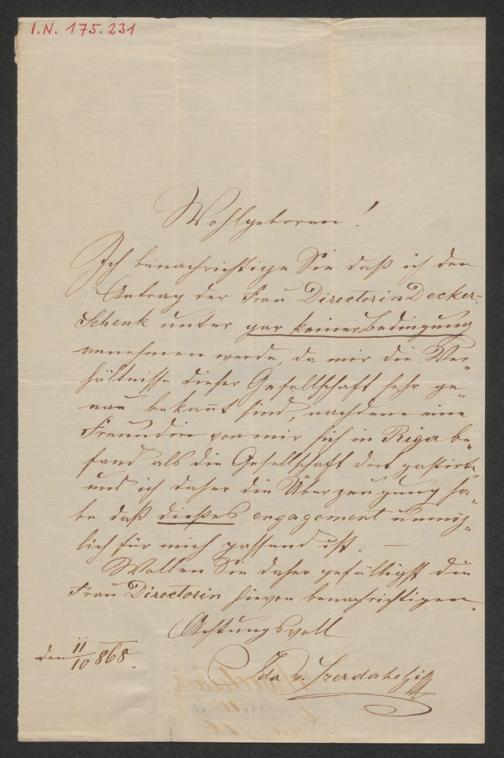 I.N. 175.231
Wohlgeboren!
Ich benachrichtige Sie daß ich den
Antrag der Frau Directorin Decker-
Schenk unter gar keiner Bedingung
annehmen werde, da mir die Ver„
hältnisse dieser Gesellschaft sehr ge„
nau bekañt sind, nachdem eine
Freundin von mir sich in Riga be„
fand als die Gesellschaft dort gastirte,
und ich daher die Überzeugung ha„
be daß dießes engagement unmög„
lich für mich passend ist. –
Wollen Sie daher gefälligst die
Frau Directorin hievon benachrichtigen.
Achtungsvoll
den 11/10 868.
Ida v. Szerdahelyi